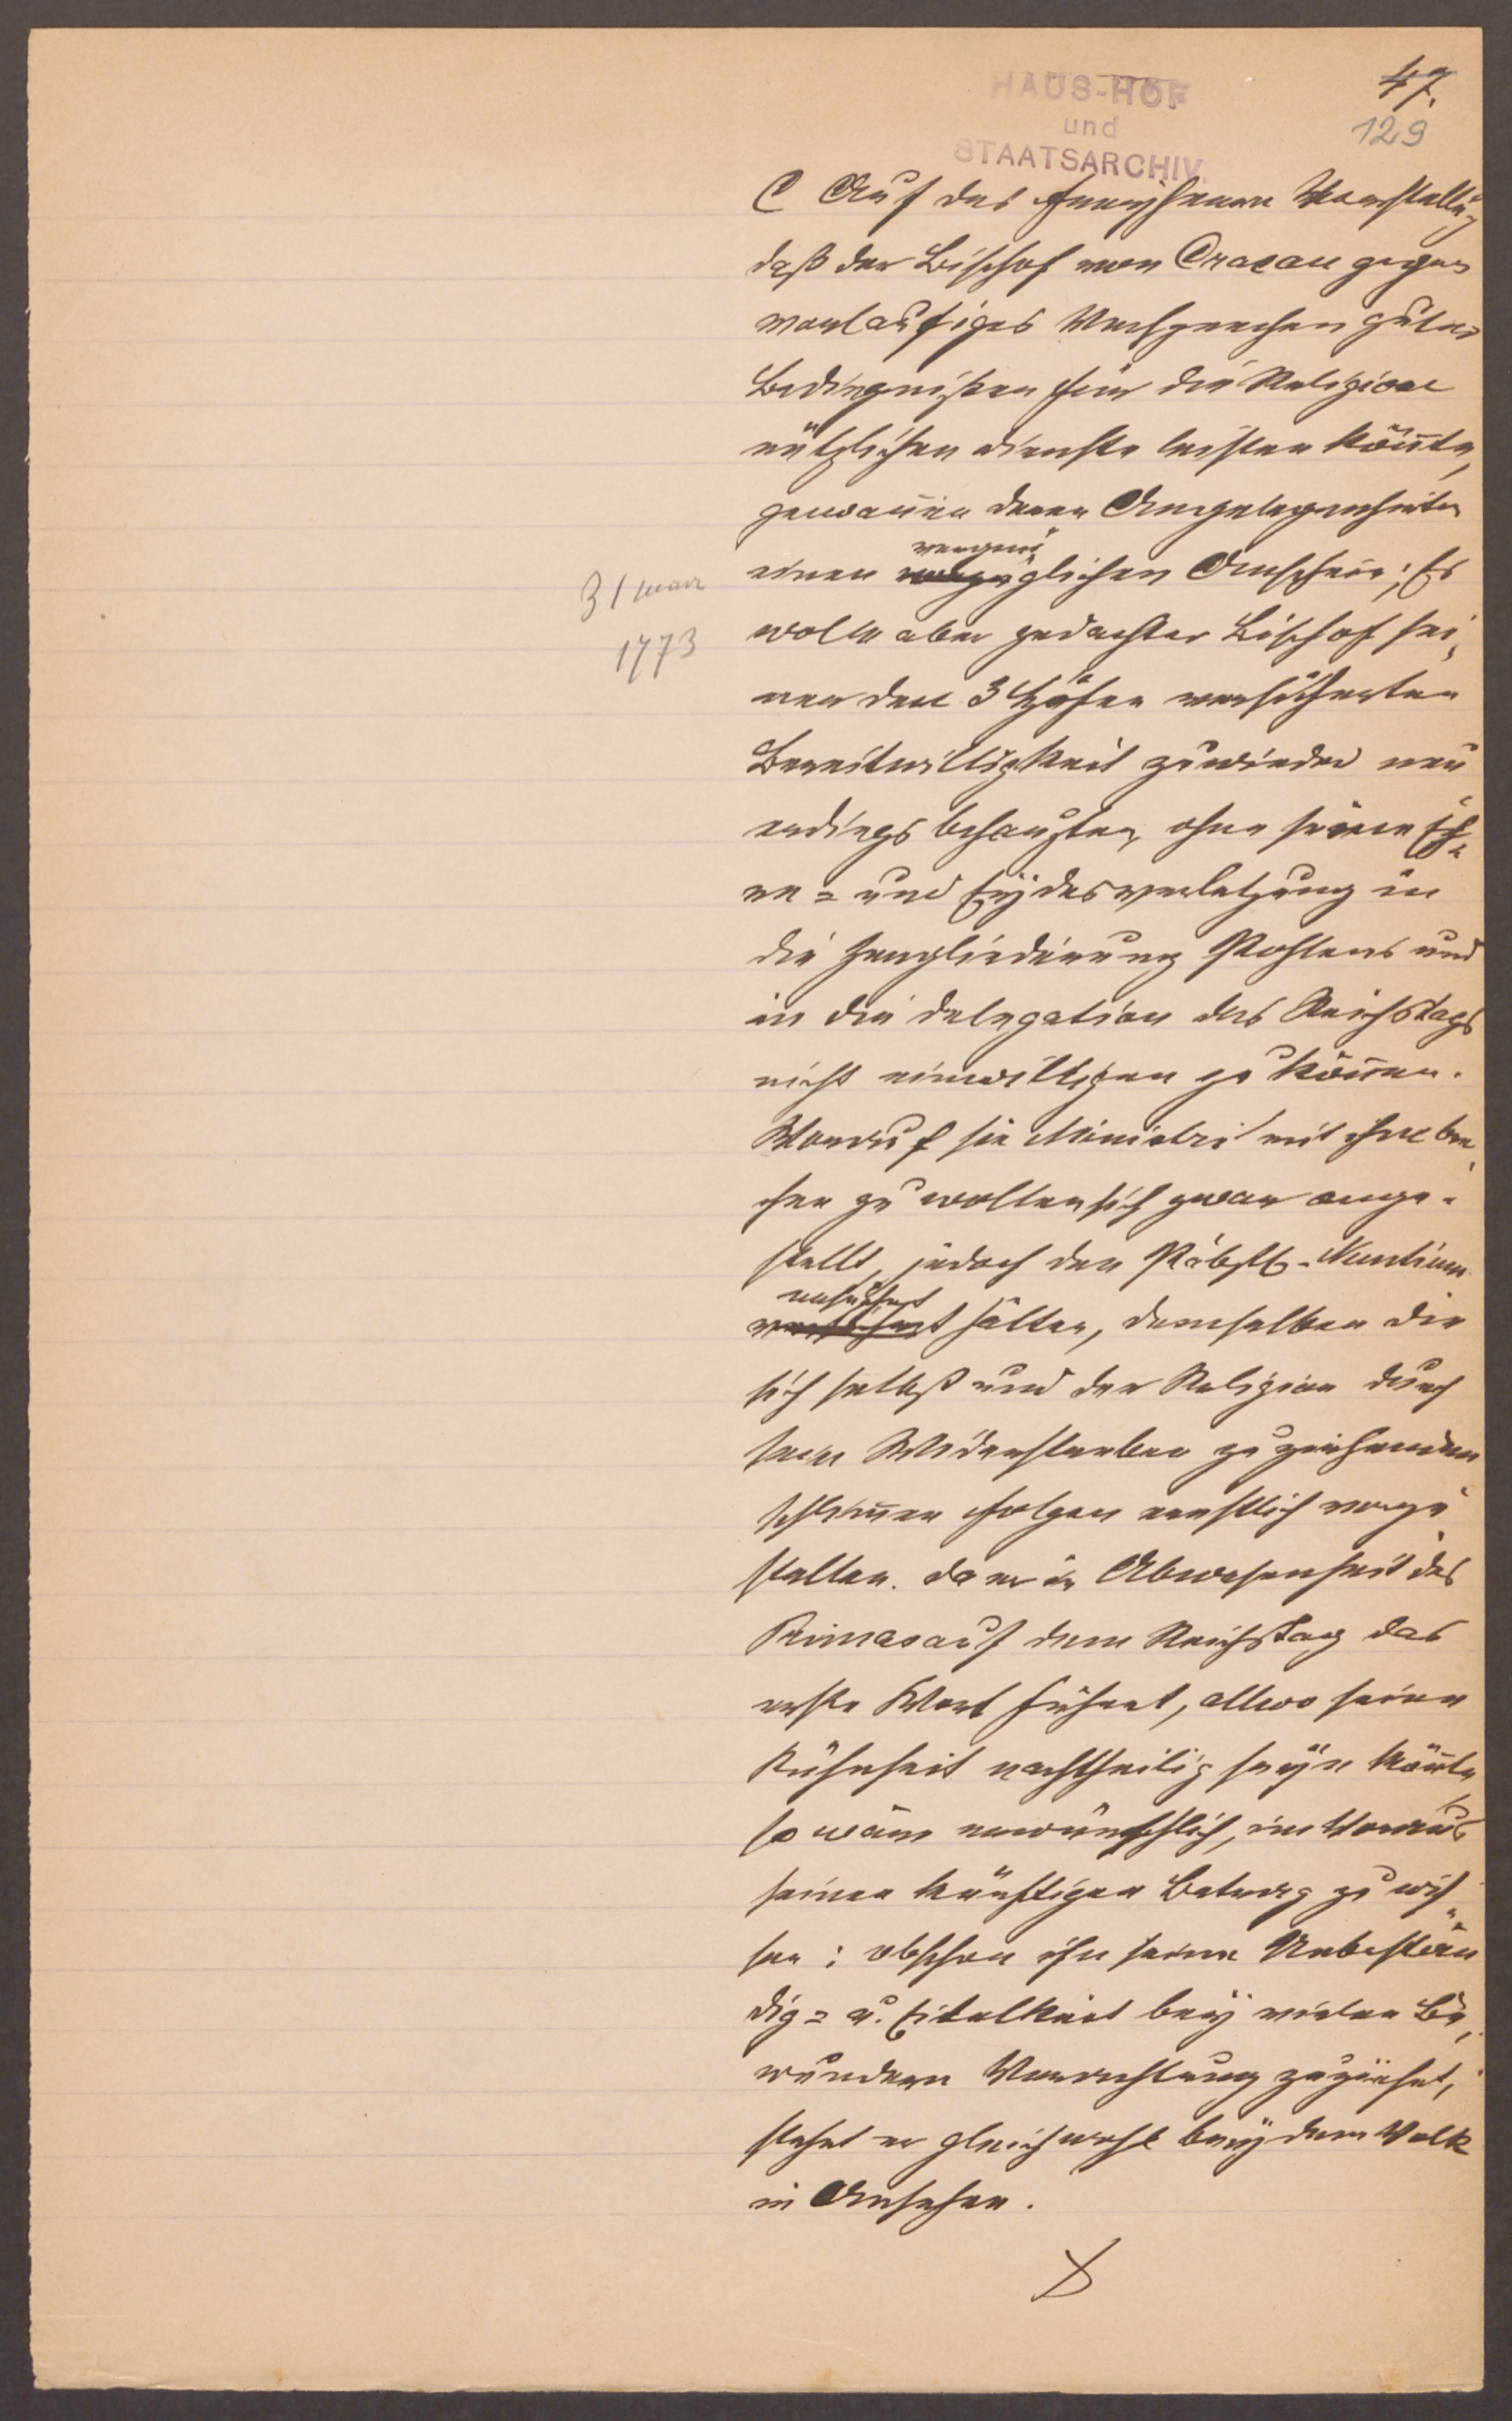 47.
129
HAUS-HOF
und
STAATSARCHIV.
C Auf des Freyherrn Vorstellung
daß der Bischof von Cracau gegen
vorlaufiges Versprechen guter
Bedingnißen für die Religion
nützlichen dienste leisten könnte,
gewannen deren Angelegenheiten
vergnü
einen glichen Anschein; Es
31 marz
1773
wolle aber gedachter Bischof sei,
ner den 3 Höfen versicherten
Bereitwilligkeit zuwieder neu
erdings behaupten, ohne seine Eh,
re= und Eydesverletzung in
die Zergliederung Pohlens und
in die delegation des Reichstags
nicht einwilligen zu können.
Worauf sie Ministri mit ihme bre,
chen zu wollen sich zwar ange-
stellt, jedoch den Päbstl. Nuntium
ersucht hätten, demselben die
sich selbst und der Religion durch
sein Widerstreben zuziehenden
schlimen Folgen ernstlich vorzu
stellen. da er in Abwesenheit des
Primas auf dem Reichstag das
erste Wort führet, allwo seine
Kühnheit nachtheilig seyn könnte
so wäre erwünschlich, im Voraus
seinen künftigen Betrag zu wis,
sen: obschon ihn seine Unbestän
dig= u. Eitelkeit bey vielen Be,
wundern Verachtung zuziehet,
stehet er gleichwohl bey dem Volk
in Ansehen.